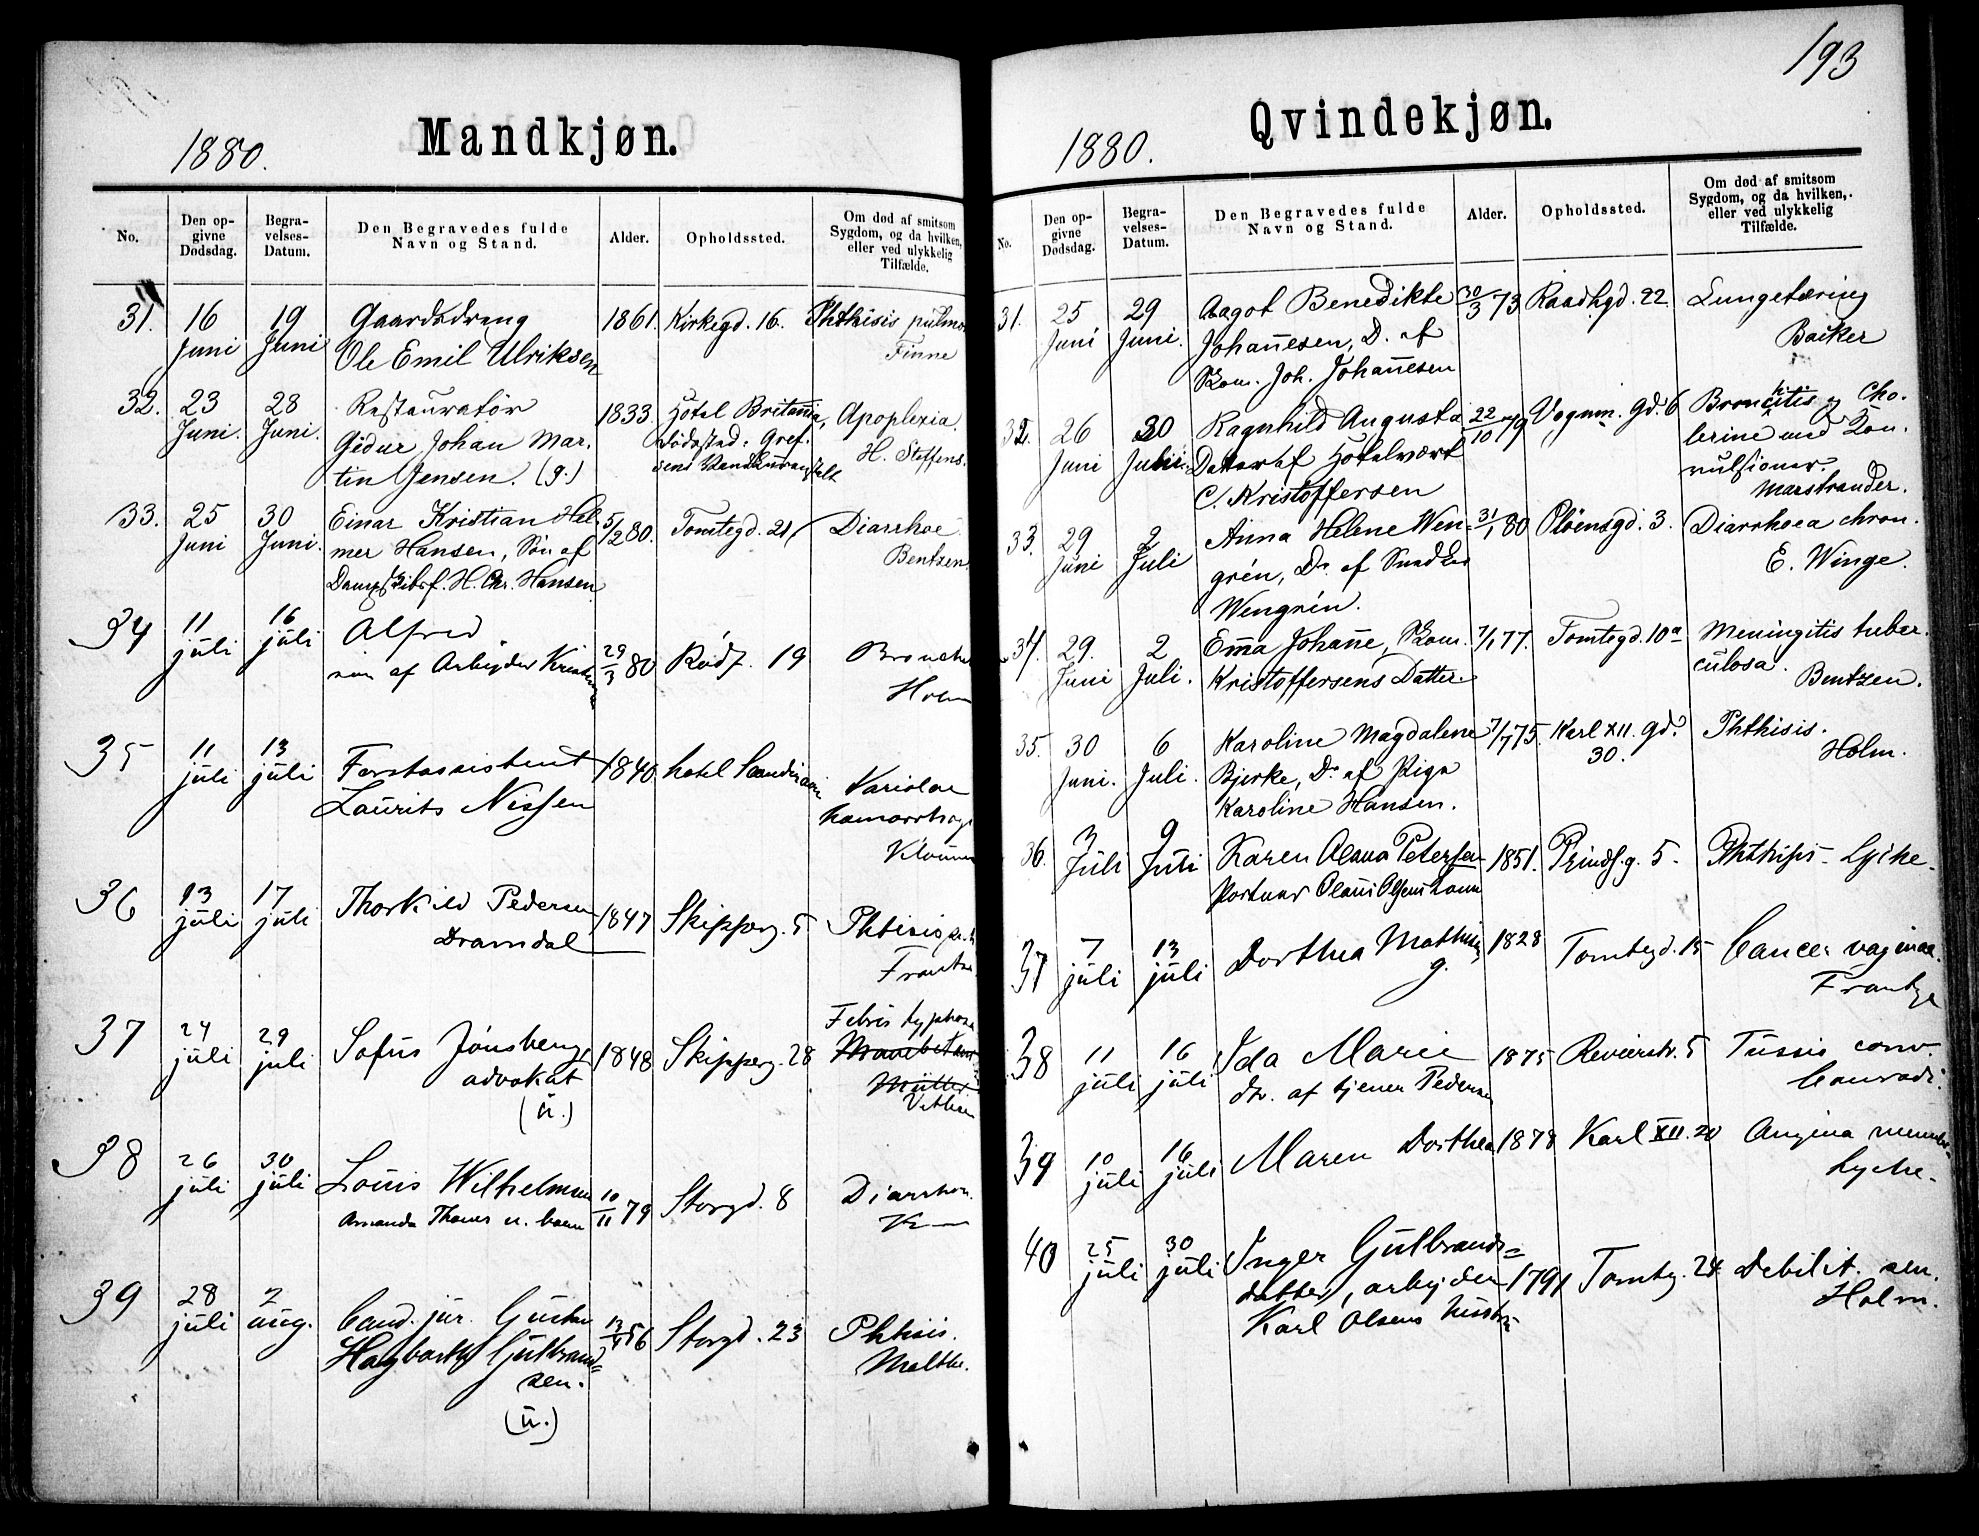 193
1880.
Mandkjøn.
No.
Den op-
givne
Dødsdag.
Begra-
velses-
Datum.
Den Begravedes fulde
Navn og Stand.
Alder.
Opholdssted.
Om død af smitsom
Sygdom, og da hvilken,
eller ved ulykkelig
Tilfælde.
31. 16 19 Gaardsdreng 1861. Kirkegd. 16. Phthisis pulmo
Juni Juni Ole Emil Ulriksen Finne
32. 23 28 Restauratør 1833. Hôtel Britannia, Apoplexia.
Juni. Juni. Gidur Johan Mar- Dødsstad: Gref- H. Steffens.
tin Jensen. (g.) sens Vandkuranstalt
33. 25 30 Einar Kristian Hel- 5/2 80. Tomtegd. 21 Diarrhoe
Juni Juni. mer Hansen, Søn af Bentzen.
H. Chr. Hansen
34 11 16 Alfred 29/3 80 Rødf. 19
juli juli søn af Arbejder Holm
35 11 13 Forstassistent 1840. hotel Variolae
juli juli Laurits Nissen
36 13 17 Thorkild Pedersen 1847 Skipperg. 5 Phtisis
juli juli Dramdal
37 24 29 Sofus Jonsberg, 1848 Skipperg. 28 Febris typhosa
juli juli advokat
(u.)
38 26 30 Louis Wilhelmsen 10/11 79 Storgd. 8
juli juli Amanda u. barn
39 28 2 Cand. jur. Gustav 56 Storgd. 23 Phtisis.
juli aug. Gulbrand= Malthe.
sen.
(u.)
1880.
Qvindekjøn.
No.
Den op-
givne
Dødsdag.
Begra-
velses-
Datum.
Den Begravedes fulde
Navn og Stand.
Alder.
Opholdssted.
Om død af smitsom
Sygdom, og da hvilken,
eller ved ulykkelig
Tilfælde.
31. 25 29 Aagot Benedikte 30/3 73 Raadhgd. 22 Lungetæring
Juni Juni. Johannesen, D. af Backer
Skom. Joh. Johannesen
32. 26 30 Ragnhild Augusta 22/10 79 Vognm. Gd. 6 Bronchitis og Cho-
Juni Datter af Hôtelvært lerine med Kon-
C. Kristoffersen vulsioner.
Marstrander.
33. 29 2 Anna Helene Wen- 31/1 80 Pløensgd. 3. Diarrhoea chron.
Juni Juli grén, Dr. af E. Winge.
Wengrén.
34. 29. 2 Emma Johanne, Skom. 7/1 77. Tomtegd. 10a Meningitis tuber-
Juni Juli. Kristoffersens Datter. culosa. Bentzen.
35. 30 6 Karoline Magdalene 7/7 75. Karl XII. gd. Phthisis.
Juni. Juli. Bjerke, Dr. af Piga 30. Holm.
Karoline Hansen.
36. 3 9 Karen Olava Petersen 1851. Prindsg. 5. Phthisis Lyche.
Juli Juli
37 7 13 Dorthea 1828 Tomtegd. 15 Cancer vaginae.
juli juli g. Frantze
38 11 16 Ida Marie 1875 Revierstr. 5 Tussis conv.
juli juli dtr. af tjener Pedersen Conradi.
39 10 16 Maren Dorthea 1878 Karl XII. 20 Angina
juli juli Lyche.
40 25 30 Inger Gulbrands= 1791 Tomteg. 24 Debilit. sen.
juli juli datter, arbejder Holm.
Karl Olsens